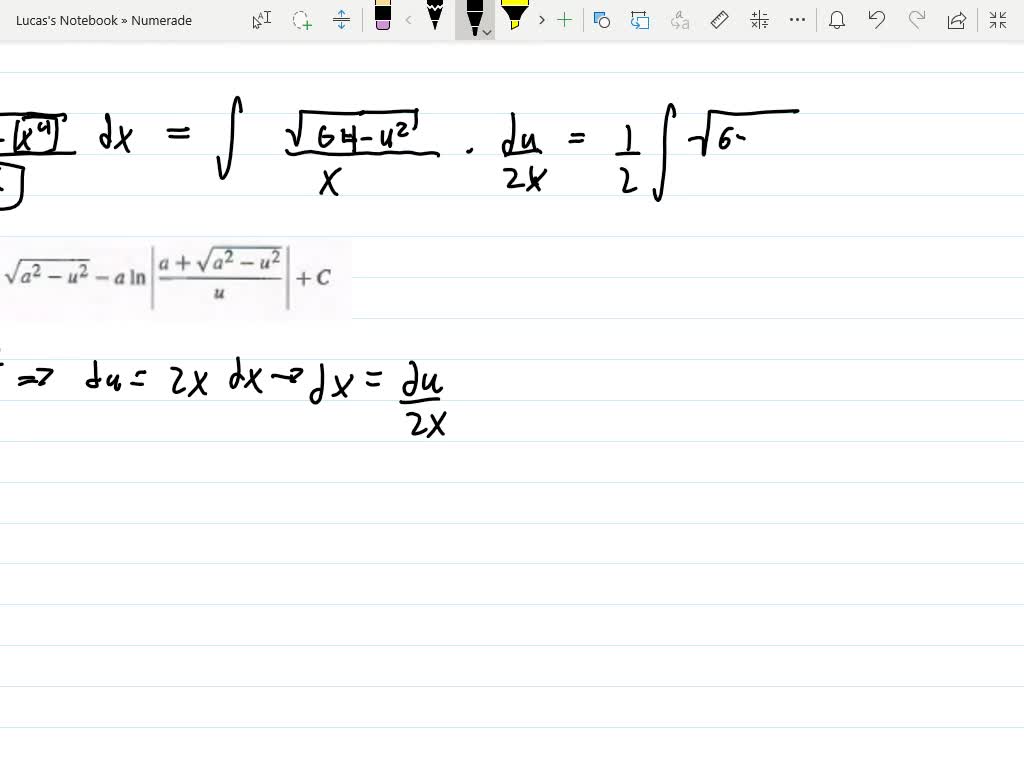 Lucas's Notebook » Numerade
- x⁴ dx = ∫ √(64-u²) / x · du / 2x = 1/2 ∫ √6-
√(a² − u²) − a ln | (a + √(a² − u²)) / u | + C
=> du = 2x dx → dx = du / 2x